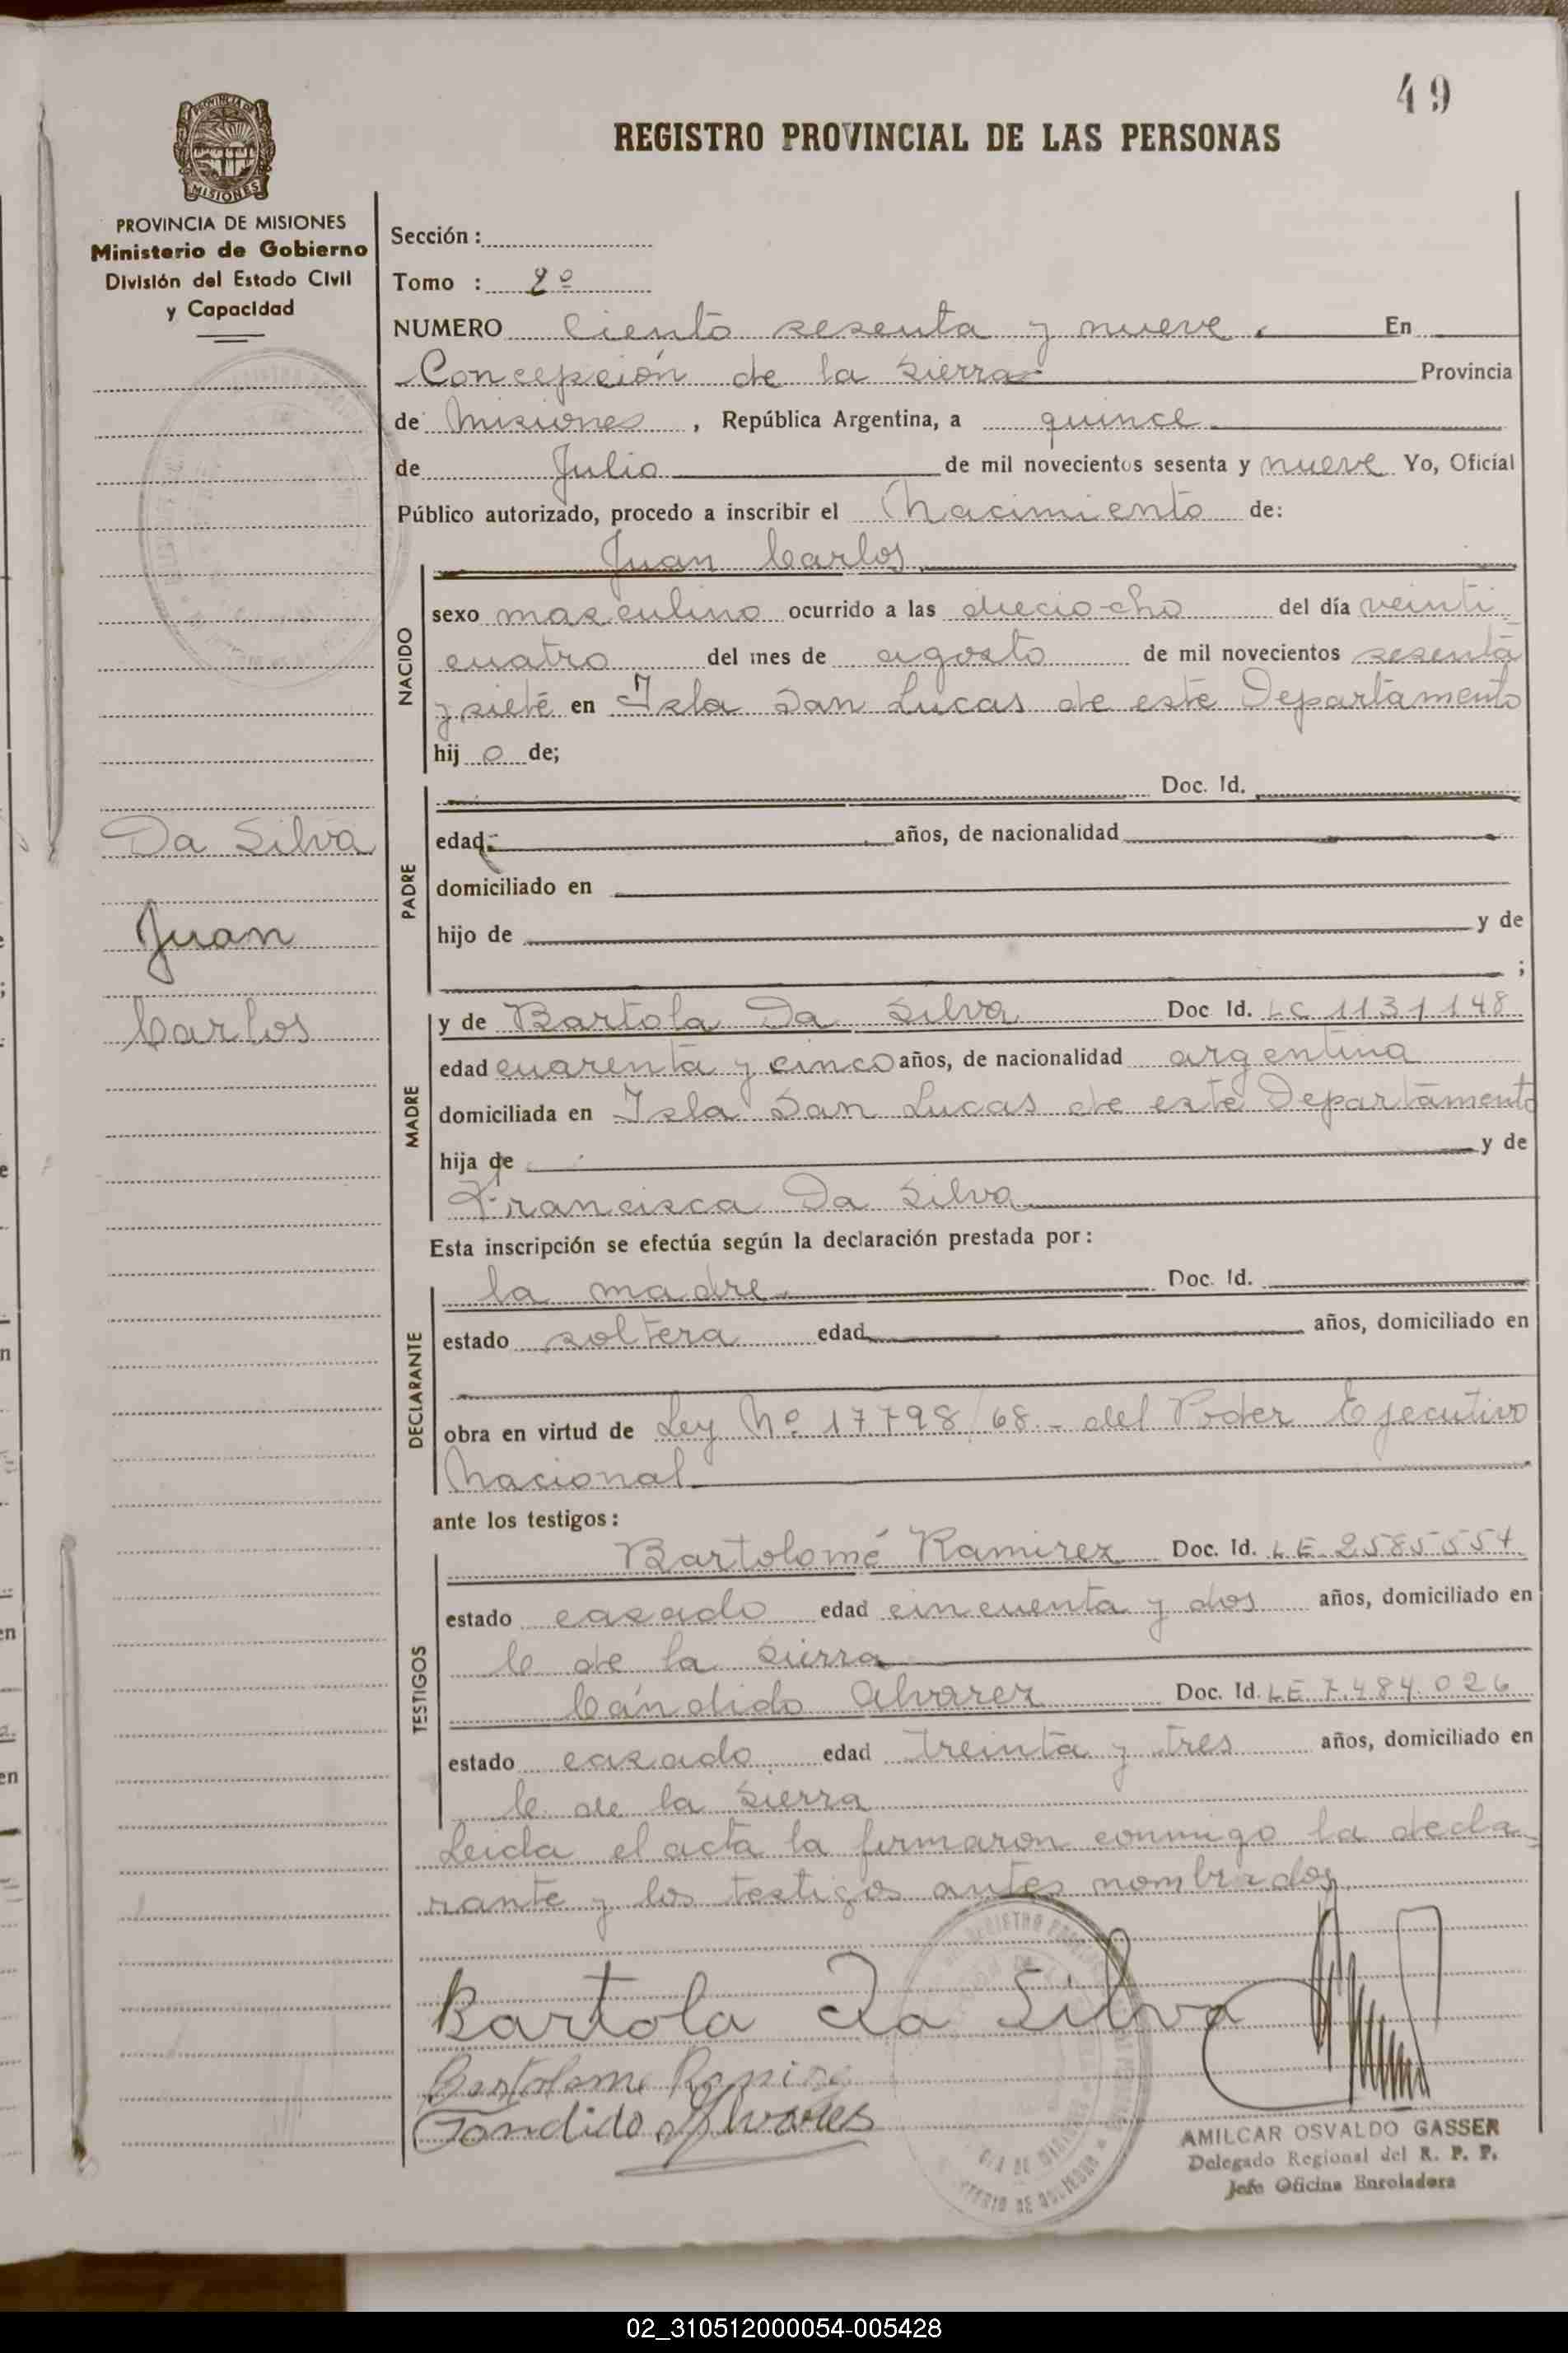 49
REGISTRO PROVINCIAL DE LAS PERSONAS
PROVINCIA DE MISIONES
Ministerio de Gobierno
División del Estado Civil
y Capacidad
Sección :
Tomo : 2º
NUMERO Ciento sesenta y nueve. En
Concepción de la Sierra Provincia
de Misiones, República Argentina, a quince
de Julio de mil novecientos sesenta y nueve Yo, Oficial
Público autorizado, procedo a inscribir el Nacimiento de:
Juan Carlos
NACIDO
sexo masculino ocurrido a las dieciocho del día veinti
cuatro del mes de agosto de mil novecientos sesenta
y siete en Isla San Lucas de este Departamento
hij o de;
PADRE
Doc. Id.
edad años, de nacionalidad
domiciliado en
hijo de y de
;
Da Silva
Juan
Carlos
MADRE
y de Bartola Da Silva Doc Id. LC 1131148
edad cuarenta y cinco años, de nacionalidad argentina
domiciliada en Isla San Lucas de este Departamento
hija de y de
Francisca Da Silva
Esta inscripción se efectúa según la declaración prestada por:
DECLARANTE
la madre. Doc. Id.
estado soltera edad años, domiciliado en
obra en virtud de Ley Nº 17798/68.- del Poder Ejecutivo
Nacional
ante los testigos:
TESTIGOS
Bartolomé Ramirez Doc. Id. LE 2585554
estado casado edad cincuenta y dos años, domiciliado en
C de la Sierra
Cándido Alvarez Doc. Id. LE 7.484.026
estado casado edad treinta y tres años, domiciliado en
C. de la Sierra
Leida el acta la firmaron conmigo la decla
rante y los testigos antes nombrados
Bartola Da Silva
Bartolome
Candido Alvares
AMILCAR OSVALDO GASSER
Delegado Regional del R. P. P.
Jefe Oficina Enroladora
02_310512000054-005428